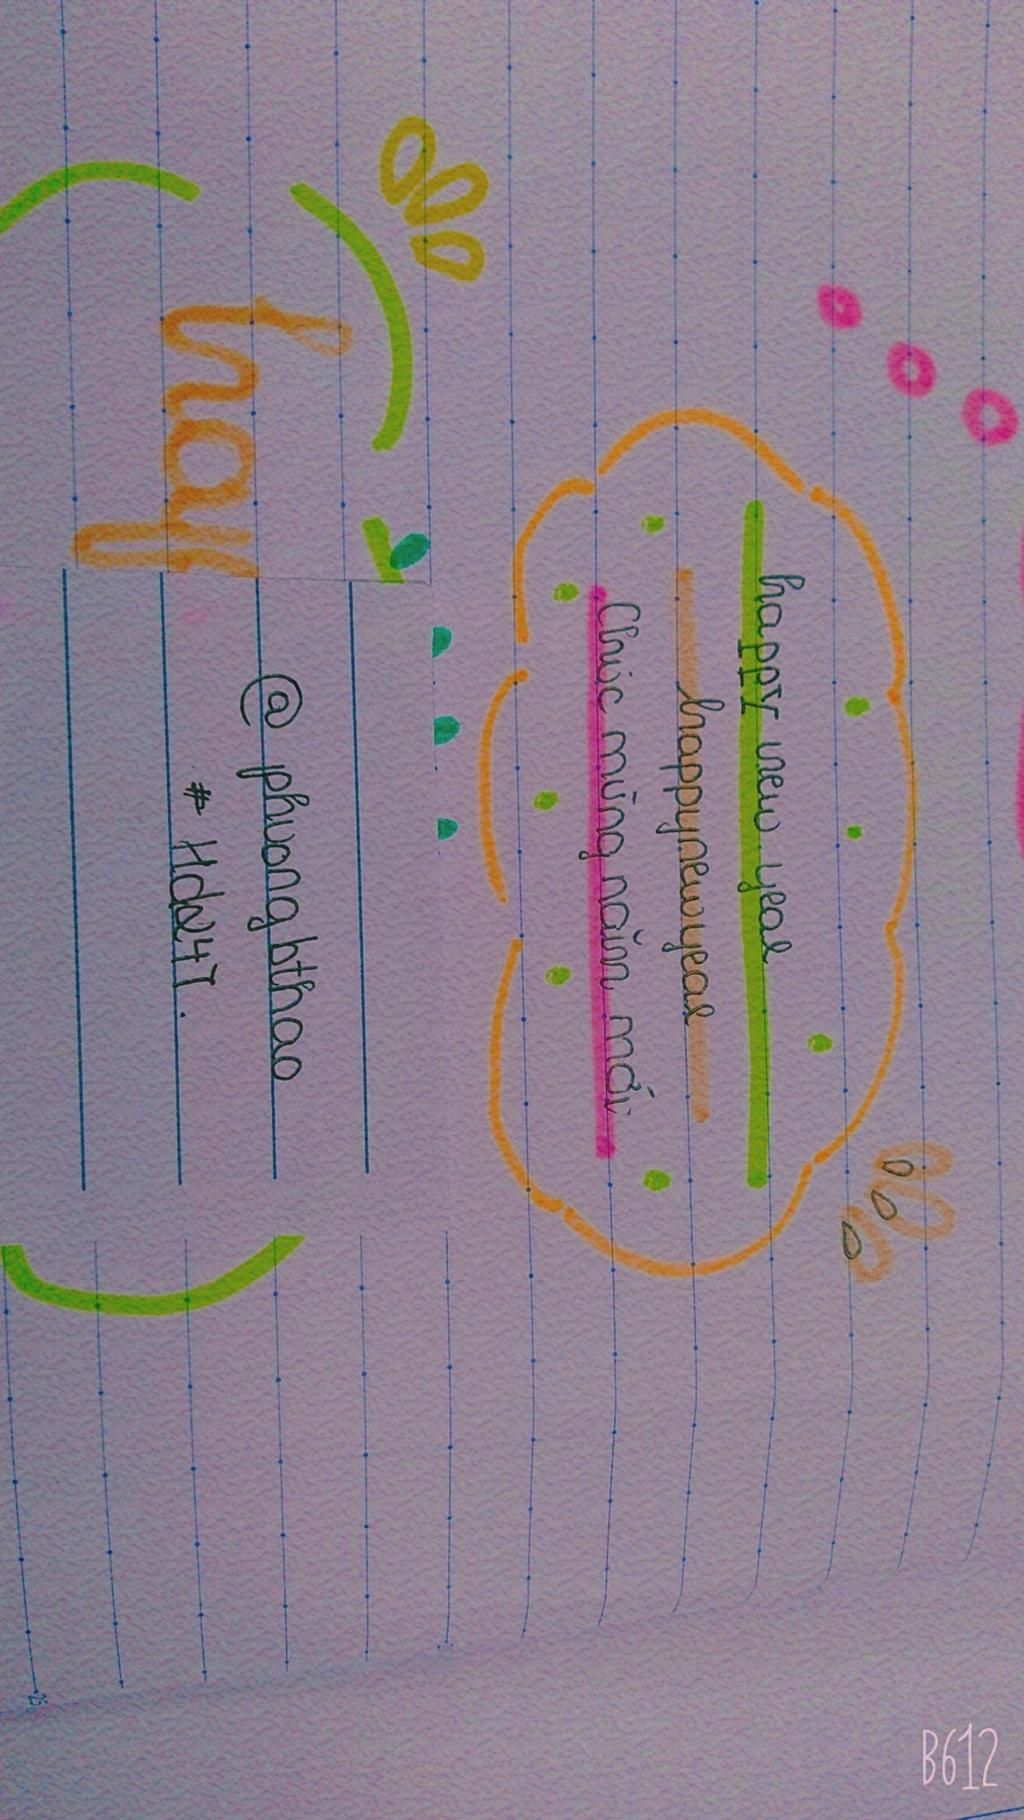 happy new year
happynewyear
Chúc mừng năm mới
hay
@ phuongbthao
# Hdz47.
25
B612